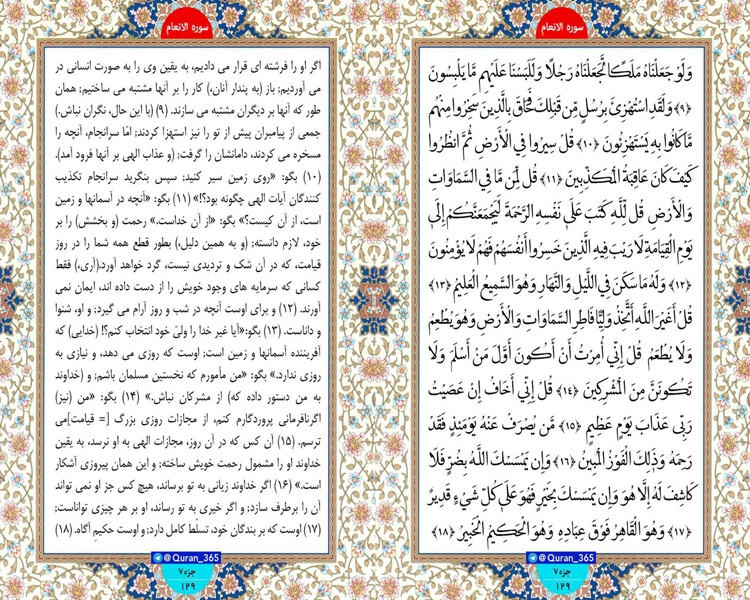 سوره الانعام
وَلَوْ جَعَلْنَاهُ مَلَكًا لَّجَعَلْنَاهُ رَجُلًا وَلَلَبَسْنَا عَلَيْهِم مَّا يَلْبِسُونَ
﴿۹﴾ وَلَقَدِ اسْتُهْزِئَ بِرُسُلٍ مِّن قَبْلِكَ فَحَاقَ بِالَّذِينَ سَخِرُوا مِنْهُم
مَّا كَانُوا بِهِ يَسْتَهْزِئُونَ ﴿۱۰﴾ قُلْ سِيرُوا فِي الْأَرْضِ ثُمَّ انظُرُوا
كَيْفَ كَانَ عَاقِبَةُ الْمُكَذِّبِينَ ﴿۱۱﴾ قُل لِّمَن مَّا فِي السَّمَاوَاتِ
وَالْأَرْضِ قُل لِّلَّهِ كَتَبَ عَلَىٰ نَفْسِهِ الرَّحْمَةَ لَيَجْمَعَنَّكُمْ إِلَىٰ
يَوْمِ الْقِيَامَةِ لَا رَيْبَ فِيهِ الَّذِينَ خَسِرُوا أَنفُسَهُمْ فَهُمْ لَا يُؤْمِنُونَ
﴿۱۲﴾ وَلَهُ مَا سَكَنَ فِي اللَّيْلِ وَالنَّهَارِ وَهُوَ السَّمِيعُ الْعَلِيمُ ﴿۱۳﴾
قُلْ أَغَيْرَ اللَّهِ أَتَّخِذُ وَلِيًّا فَاطِرِ السَّمَاوَاتِ وَالْأَرْضِ وَهُوَ يُطْعِمُ
وَلَا يُطْعَمُ قُلْ إِنِّي أُمِرْتُ أَنْ أَكُونَ أَوَّلَ مَنْ أَسْلَمَ وَلَا
تَكُونَنَّ مِنَ الْمُشْرِكِينَ ﴿۱۴﴾ قُلْ إِنِّي أَخَافُ إِنْ عَصَيْتُ
رَبِّي عَذَابَ يَوْمٍ عَظِيمٍ ﴿۱۵﴾ مَّن يُصْرَفْ عَنْهُ يَوْمَئِذٍ فَقَدْ
رَحِمَهُ وَذَٰلِكَ الْفَوْزُ الْمُبِينُ ﴿۱۶﴾ وَإِن يَمْسَسْكَ اللَّهُ بِضُرٍّ فَلَا
كَاشِفَ لَهُ إِلَّا هُوَ وَإِن يَمْسَسْكَ بِخَيْرٍ فَهُوَ عَلَىٰ كُلِّ شَيْءٍ قَدِيرٌ
﴿۱۷﴾ وَهُوَ الْقَاهِرُ فَوْقَ عِبَادِهِ وَهُوَ الْحَكِيمُ الْخَبِيرُ ﴿۱۸﴾
@Quran_365
جزء۷
۱۲۹
سوره الانعام
اگر او را فرشته ای قرار می دادیم، به یقین وی را به صورت انسانی در
می آوردیم; باز (به پندار آنان،) کار را بر آنها مشتبه می ساختیم; همان
طور که آنها بر دیگران مشتبه می سازند. (۹) (با این حال، نگران نباش،)
جمعی از پیامبران پیش از تو را نیز استهزا کردند; امّا سرانجام، آنچه را
مسخره می کردند، دامانشان را گرفت; (و عذاب الهی بر آنها فرود آمد).
(۱۰) بگو: «روی زمین سیر کنید; سپس بنگرید سرانجام تکذیب
کنندگان آیات الهی چگونه بود؟!» (۱۱) بگو: «آنچه در آسمانها و زمین
است، از آن کیست؟» بگو: «از آن خداست.» رحمت (و بخشش) را بر
خود، لازم دانسته; (و به همین دلیل،) بطور قطع همه شما را در روز
قیامت، که در آن شک و تردیدی نیست، گرد خواهد آورد.(آری،) فقط
کسانی که سرمایه های وجود خویش را از دست داده اند، ایمان نمی
آورند. (۱۲) و برای اوست آنچه در شب و روز آرام می گیرد; و او، شنوا
و داناست. (۱۳) بگو:«آیا غیر خدا را ولیّ خود انتخاب کنم؟! (خدایی) که
آفریننده آسمانها و زمین است; اوست که روزی می دهد، و نیازی به
روزی ندارد.» بگو: «من مأمورم که نخستین مسلمان باشم; و (خداوند
به من دستور داده که) از مشرکان نباش.» (۱۴) بگو: «من (نیز)
اگرنافرمانی پروردگارم کنم، از مجازات روزی بزرگ [= قیامت]می
ترسم. (۱۵) آن کس که در آن روز، مجازات الهی به او نرسد، به یقین
خداوند او را مشمول رحمت خویش ساخته; و این همان پیروزی آشکار
است.» (۱۶) اگر خداوند زیانی به تو برساند، هیچ کس جز او نمی تواند
آن را برطرف سازد; و اگر خیری به تو رساند، او بر هر چیزی تواناست;
(۱۷) اوست که بر بندگان خود، تسلّط کامل دارد; و اوست حکیمِ آگاه. (۱۸)
@Quran_365
جزء۷
۱۲۹